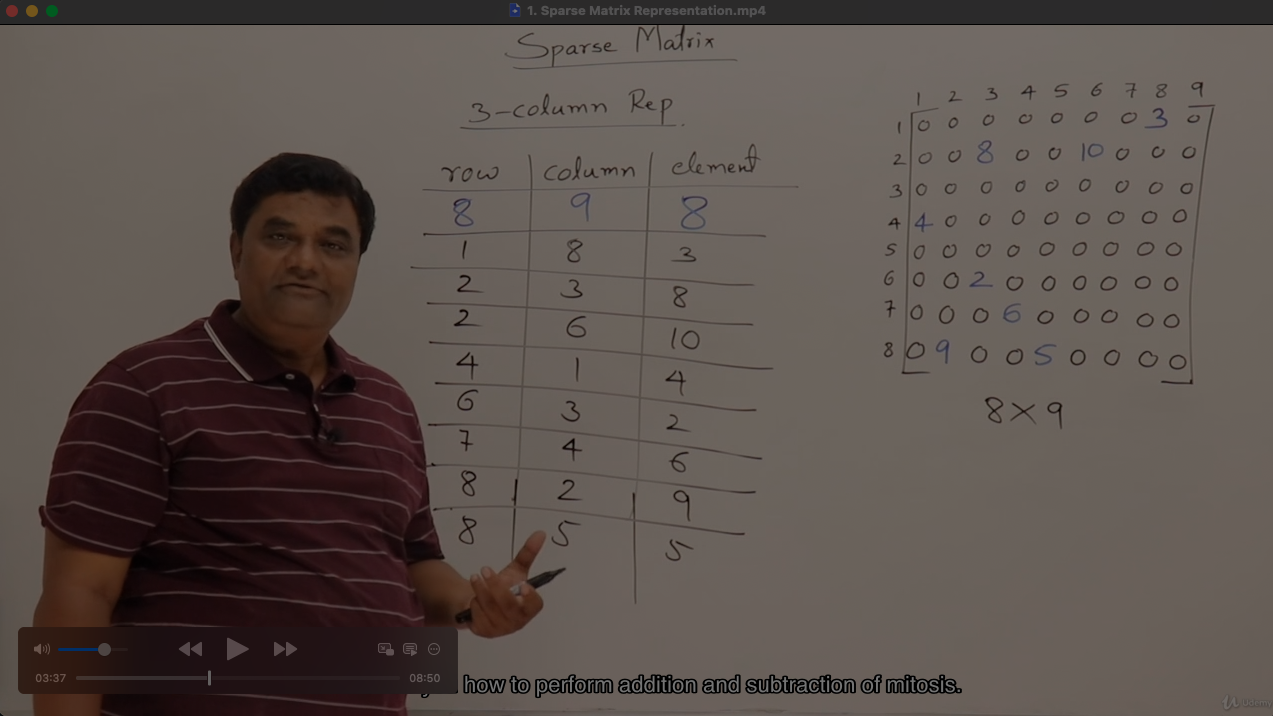 1. Sparse Matrix Representation.mp4
Sparse Matrix
3-column Rep
row column element
8 9 8
1 8 3
2 3 8
2 6 10
4 1 4
6 3 2
7 4 6
8 2 9
8 5 5
1 2 3 4 5 6 7 8 9
1 0 0 0 0 0 0 0 3 0
2 0 0 8 0 0 10 0 0 0
3 0 0 0 0 0 0 0 0 0
4 4 0 0 0 0 0 0 0 0
5 0 0 0 0 0 0 0 0 0
6 0 0 2 0 0 0 0 0 0
7 0 0 0 6 0 0 0 0 0
8 0 9 0 0 5 0 0 0 0
8×9
03:37 08:50
how to perform addition and subtraction of mitosis.
Udemy